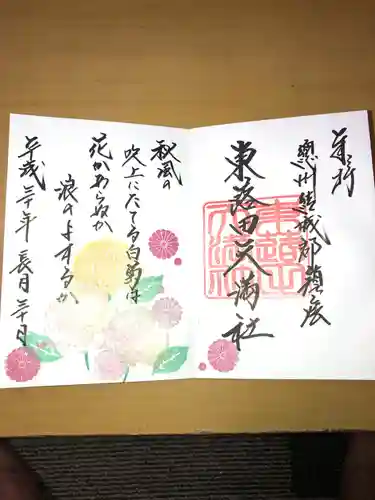 奉拝
總州結城郡鎮座
東蕗田天満社
秋風の
吹上にたてる白菊は
花かあらぬか
浪のよするか
平成三十年長月三十日